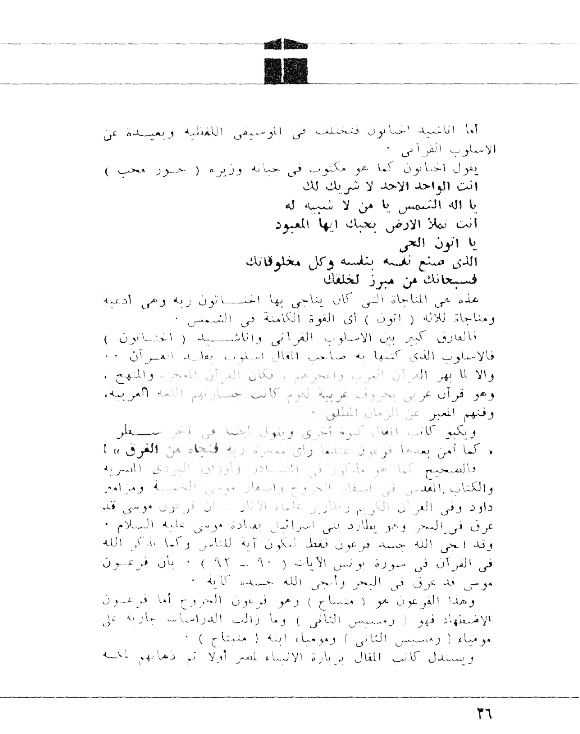 أما اناشيد اخناتون فتختلف فى الموسيقى اللفظية وبعيــدة عن
الاسلوب القرآنى ٠
يقول اخناتون كما هو مكتوب فى جبانة وزيره ( حــور محب )
انت الواحد الاحد لا شريك لك
يا اله الشمس يا من لا شبيه له
أنت تملأ الارض بحبك ايها المعبود
يا اتون الحى
الذى صنع نفسه بنفسه وكل مخلوقاتك
فسبحانك من مبرز لخلقك
هذه هى المناجاة التى كان يناجى بها اخنــاتون ربه وهى أدعية
ومناجاة للاله ( اتون ) أى القوة الكامنة فى الشمس ٠
فالفارق كبير بين الاسلوب القرآنى واناشــيد ( اخنــاتون )
فالاسلوب الذى كتبها به صاحب المقال اسلوب تقليد القــرآن ٠٠
والا لما بهر القرآن العرب واعجزهم ، فكان القرآن المعجز والمنهج ،
وهو قرآن عربى بحروف عربية لقوم كانت حضارتهم اللغة العربية،
وفنهم المعبر عن الزمان المطلق ٠
ويكبو كاتب المقال كبوة أخرى ويقول أيضا فى آخر ســطر
« كما آمن بعدها فرعون عندما رأى معجزة ربه فنجاه من الغرق » !
فالصحيح كما هو مذكور فى المصــادر وأوراق البردى المصرية
والكتاب المقدس فى اسفار الخروج واسفار موسى الخمسة ومزامير
داود وفى القرآن الكريم وتقارير علماء الآثار ــ ان فرعون موسى قد
غرق فى البحر وهو يطارد بنى اسرائيل بقيادة موسى عليه السلام ٠
وقد انجى الله جسد فرعون فقط ليكون آية للناس وكما يذكر الله
فى القرآن فى سورة يونس الآيات ( ٩٠ ــ ٩٢ ) ٠ بأن فرعــون
موسى قد غرق فى البحر وأنجى الله جسده كآية ٠
وهذا الفرعون هو ( منبتاح ) وهو فرعون الخروج أما فرعــون
الاضطهاد فهو ( رمسيس الثانى ) وما زالت الدراسات جارية على
مومياء ( رمسيس الثانى ) ومومياء ابنه ( منبتاح ) ٠
ويستدل كاتب المقال بزيارة الانبياء لمصر أولا ثم ذهابهم لمكــة
٣٦